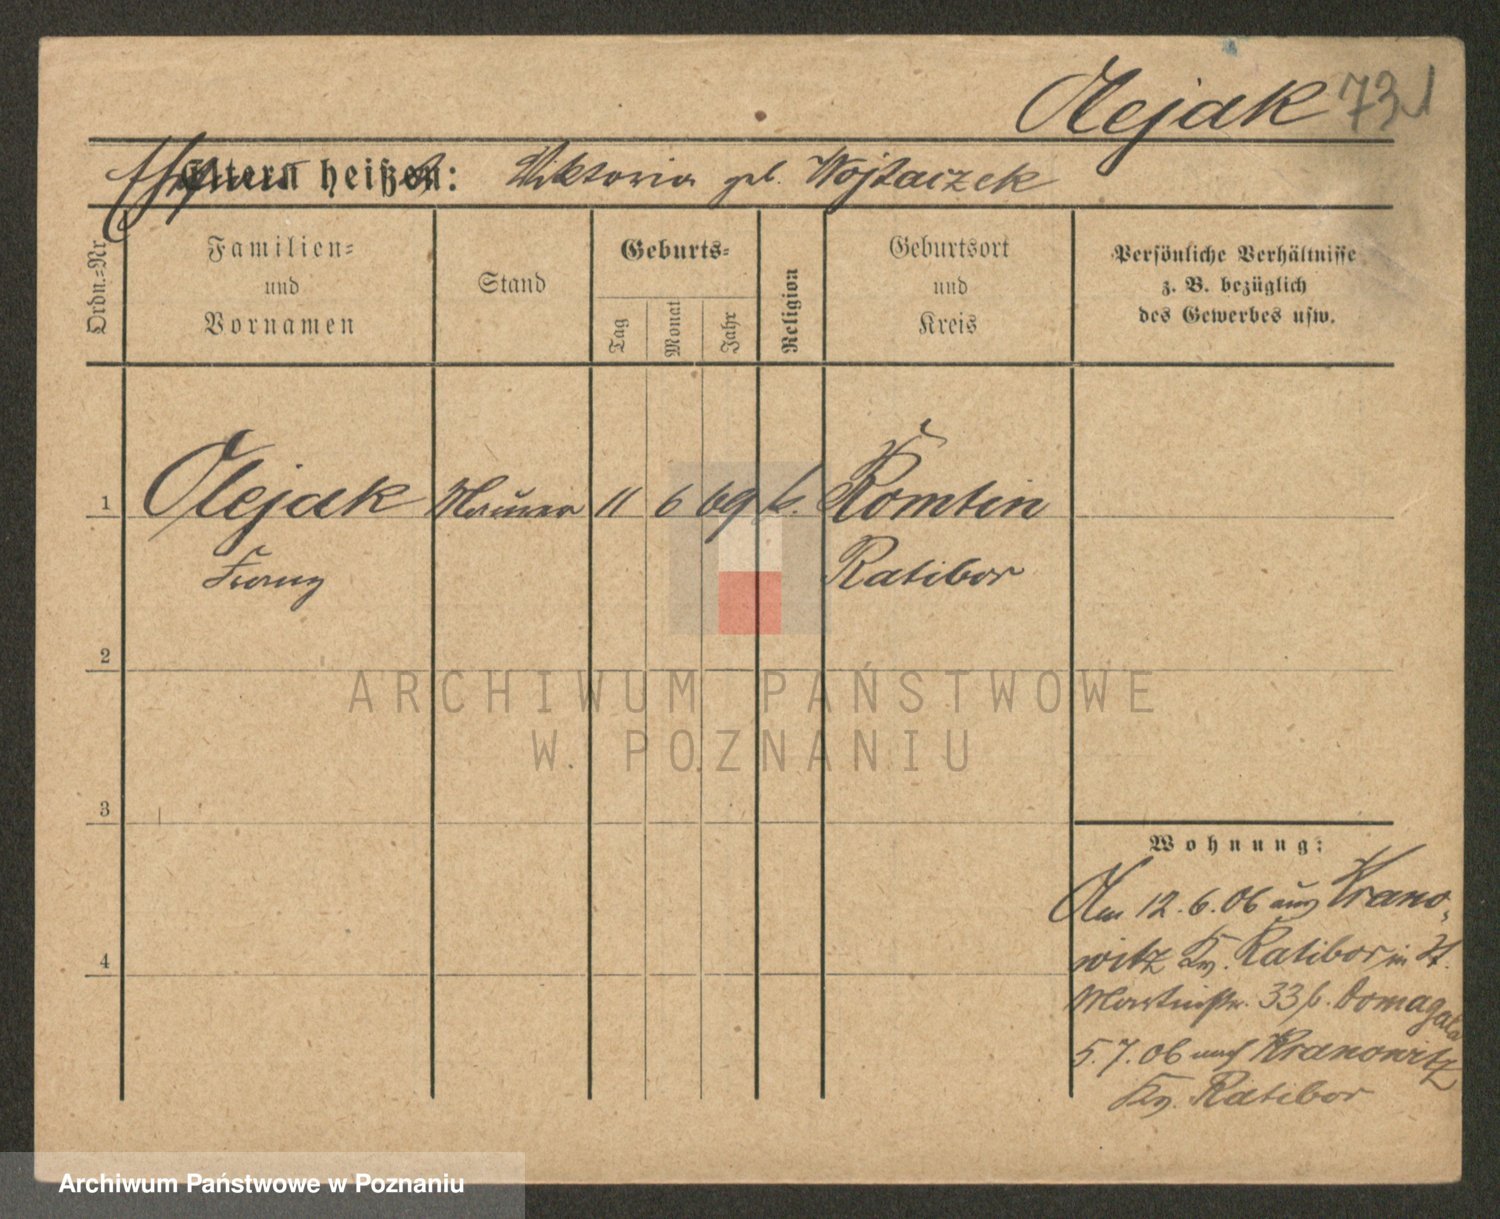 Olejak 731
Ehefrau
Eltern heißen: Viktoria geb. Wojtaczek
Ordn.=Nr.
Familien=
und
Vornamen
Stand
Geburts=
Tag
Monat
Jahr
Religion
Geburtsort
und
Kreis
Persönliche Verhältnisse
z. B. bezüglich
des Gewerbes usw.
1 Olejak Maurer 11 6 69 k. Romtin
Franz Ratibor
2
3
4
Wohnung:
Am 12.6.06 aus Krano-
witz Kr. Ratibor in St.
Martinstr. 33 b. Domagala
5.7.06 nach Kranowitz
Kr. Ratibor
ARCHIWUM PAŃSTWOWE
W POZNANIU
Archiwum Państwowe w Poznaniu